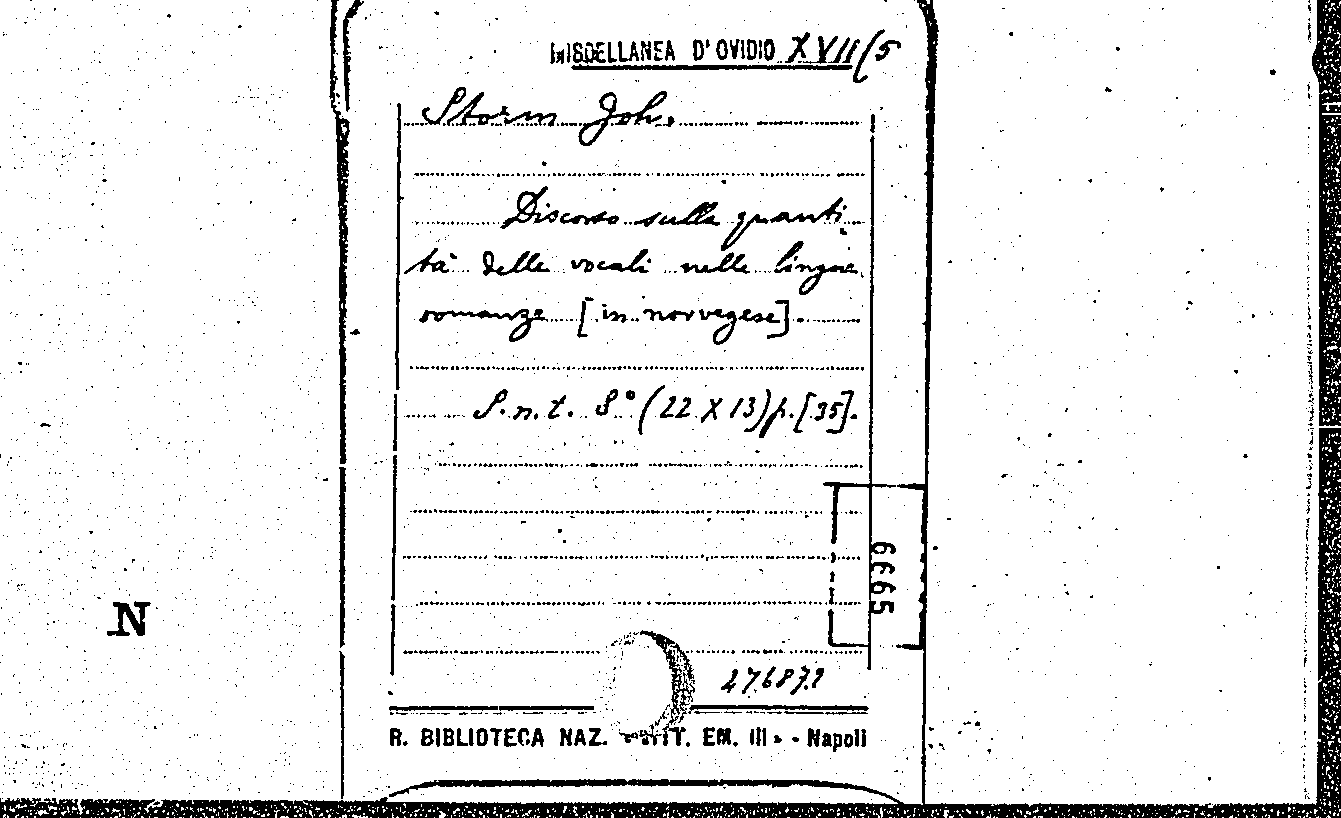 MISCELLANEA D'OVIDIO XVII/5
Storm Joh.
Discorso sulla quanti
tà delle vocali nelle lingue
romanze [in norvegese].
S.n.t. 8° (22 X 13) p. [35].
6665
N
R. BIBLIOTECA NAZ. VITT. EM. III - Napoli